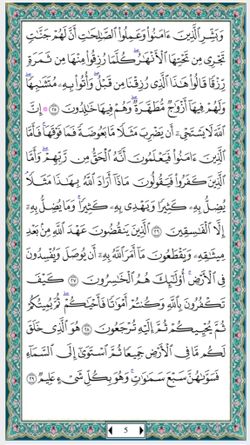 وَبَشِّرِ ٱلَّذِينَ ءَامَنُوا۟ وَعَمِلُوا۟ ٱلصَّٰلِحَٰتِ أَنَّ لَهُمْ جَنَّٰتٍ
تَجْرِى مِن تَحْتِهَا ٱلْأَنْهَٰرُ كُلَّمَا رُزِقُوا۟ مِنْهَا مِن ثَمَرَةٍ
رِّزْقًا قَالُوا۟ هَٰذَا ٱلَّذِى رُزِقْنَا مِن قَبْلُ وَأُتُوا۟ بِهِۦ مُتَشَٰبِهًا
وَلَهُمْ فِيهَآ أَزْوَٰجٌ مُّطَهَّرَةٌ وَهُمْ فِيهَا خَٰلِدُونَ ٢٥ إِنَّ
ٱللَّهَ لَا يَسْتَحْىِۦٓ أَن يَضْرِبَ مَثَلًا مَّا بَعُوضَةً فَمَا فَوْقَهَا فَأَمَّا
ٱلَّذِينَ ءَامَنُوا۟ فَيَعْلَمُونَ أَنَّهُ ٱلْحَقُّ مِن رَّبِّهِمْ وَأَمَّا
ٱلَّذِينَ كَفَرُوا۟ فَيَقُولُونَ مَاذَآ أَرَادَ ٱللَّهُ بِهَٰذَا مَثَلًا
يُضِلُّ بِهِۦ كَثِيرًا وَيَهْدِى بِهِۦ كَثِيرًا وَمَا يُضِلُّ بِهِۦٓ
إِلَّا ٱلْفَٰسِقِينَ ٢٦ ٱلَّذِينَ يَنقُضُونَ عَهْدَ ٱللَّهِ مِنۢ بَعْدِ
مِيثَٰقِهِۦ وَيَقْطَعُونَ مَآ أَمَرَ ٱللَّهُ بِهِۦٓ أَن يُوصَلَ وَيُفْسِدُونَ
فِى ٱلْأَرْضِ أُو۟لَٰٓئِكَ هُمُ ٱلْخَٰسِرُونَ ٢٧ كَيْفَ
تَكْفُرُونَ بِٱللَّهِ وَكُنتُمْ أَمْوَٰتًا فَأَحْيَٰكُمْ ثُمَّ يُمِيتُكُمْ
ثُمَّ يُحْيِيكُمْ ثُمَّ إِلَيْهِ تُرْجَعُونَ ٢٨ هُوَ ٱلَّذِى خَلَقَ
لَكُم مَّا فِى ٱلْأَرْضِ جَمِيعًا ثُمَّ ٱسْتَوَىٰٓ إِلَى ٱلسَّمَآءِ
فَسَوَّىٰهُنَّ سَبْعَ سَمَٰوَٰتٍ وَهُوَ بِكُلِّ شَىْءٍ عَلِيمٌ ٢٩
5